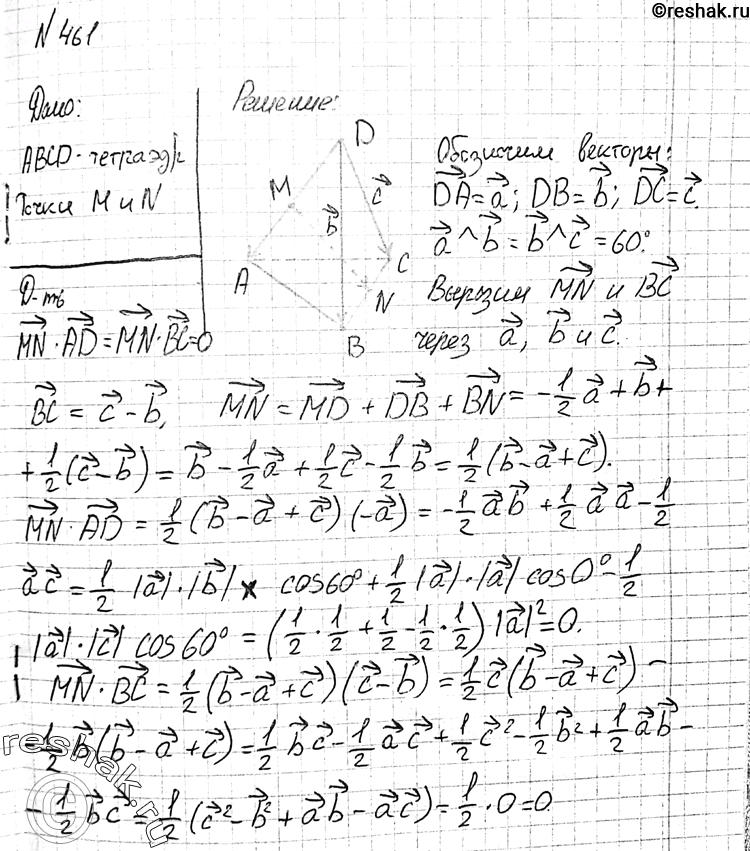 ©reshak.ru
N 461
Дано:
ABCD - тетраэдр
Точки M и N
Д-ть
\overrightarrow{MN} · \overrightarrow{AD} = \overrightarrow{MN} · \overrightarrow{BC} = 0
Решение:
D
M
\vec{c}
\vec{b}
A
C
N
B
Обозначим векторы:
\overrightarrow{DA} = \vec{a}; \overrightarrow{DB} = \vec{b}; \overrightarrow{DC} = \vec{c}.
\vec{a} ^ \vec{b} = \vec{b} ^ \vec{c} = 60°.
Выразим \overrightarrow{MN} и \overrightarrow{BC}
через \vec{a}, \vec{b} и \vec{c}.
\overrightarrow{BC} = \vec{c} - \vec{b}, \overrightarrow{MN} = \overrightarrow{MD} + \overrightarrow{DB} + \overrightarrow{BN} = -1/2 \vec{a} + \vec{b} +
+ 1/2 (\vec{c} - \vec{b}) = \vec{b} - 1/2 \vec{a} + 1/2 \vec{c} - 1/2 \vec{b} = 1/2 (\vec{b} - \vec{a} + \vec{c}).
\overrightarrow{MN} · \overrightarrow{AD} = 1/2 (\vec{b} - \vec{a} + \vec{c}) (-\vec{a}) = -1/2 \vec{a} \vec{b} + 1/2 \vec{a} \vec{a} - 1/2
\vec{a} \vec{c} = 1/2 |\vec{a}| · |\vec{b}| × cos60° + 1/2 |\vec{a}| · |\vec{a}| cos0° - 1/2
|\vec{a}| · |\vec{c}| cos60° = (1/2 · 1/2 + 1/2 - 1/2 · 1/2) |\vec{a}|² = 0.
\overrightarrow{MN} · \overrightarrow{BC} = 1/2 (\vec{b} - \vec{a} + \vec{c}) (\vec{c} - \vec{b}) = 1/2 \vec{c} (\vec{b} - \vec{a} + \vec{c}) -
- 1/2 \vec{b} (\vec{b} - \vec{a} + \vec{c}) = 1/2 \vec{b} \vec{c} - 1/2 \vec{a} \vec{c} + 1/2 \vec{c}² - 1/2 \vec{b}² + 1/2 \vec{a} \vec{b} -
- 1/2 \vec{b} \vec{c} = 1/2 (\vec{c}² - \vec{b}² + \vec{a} \vec{b} - \vec{a} \vec{c}) = 1/2 · 0 = 0
reshak.ru